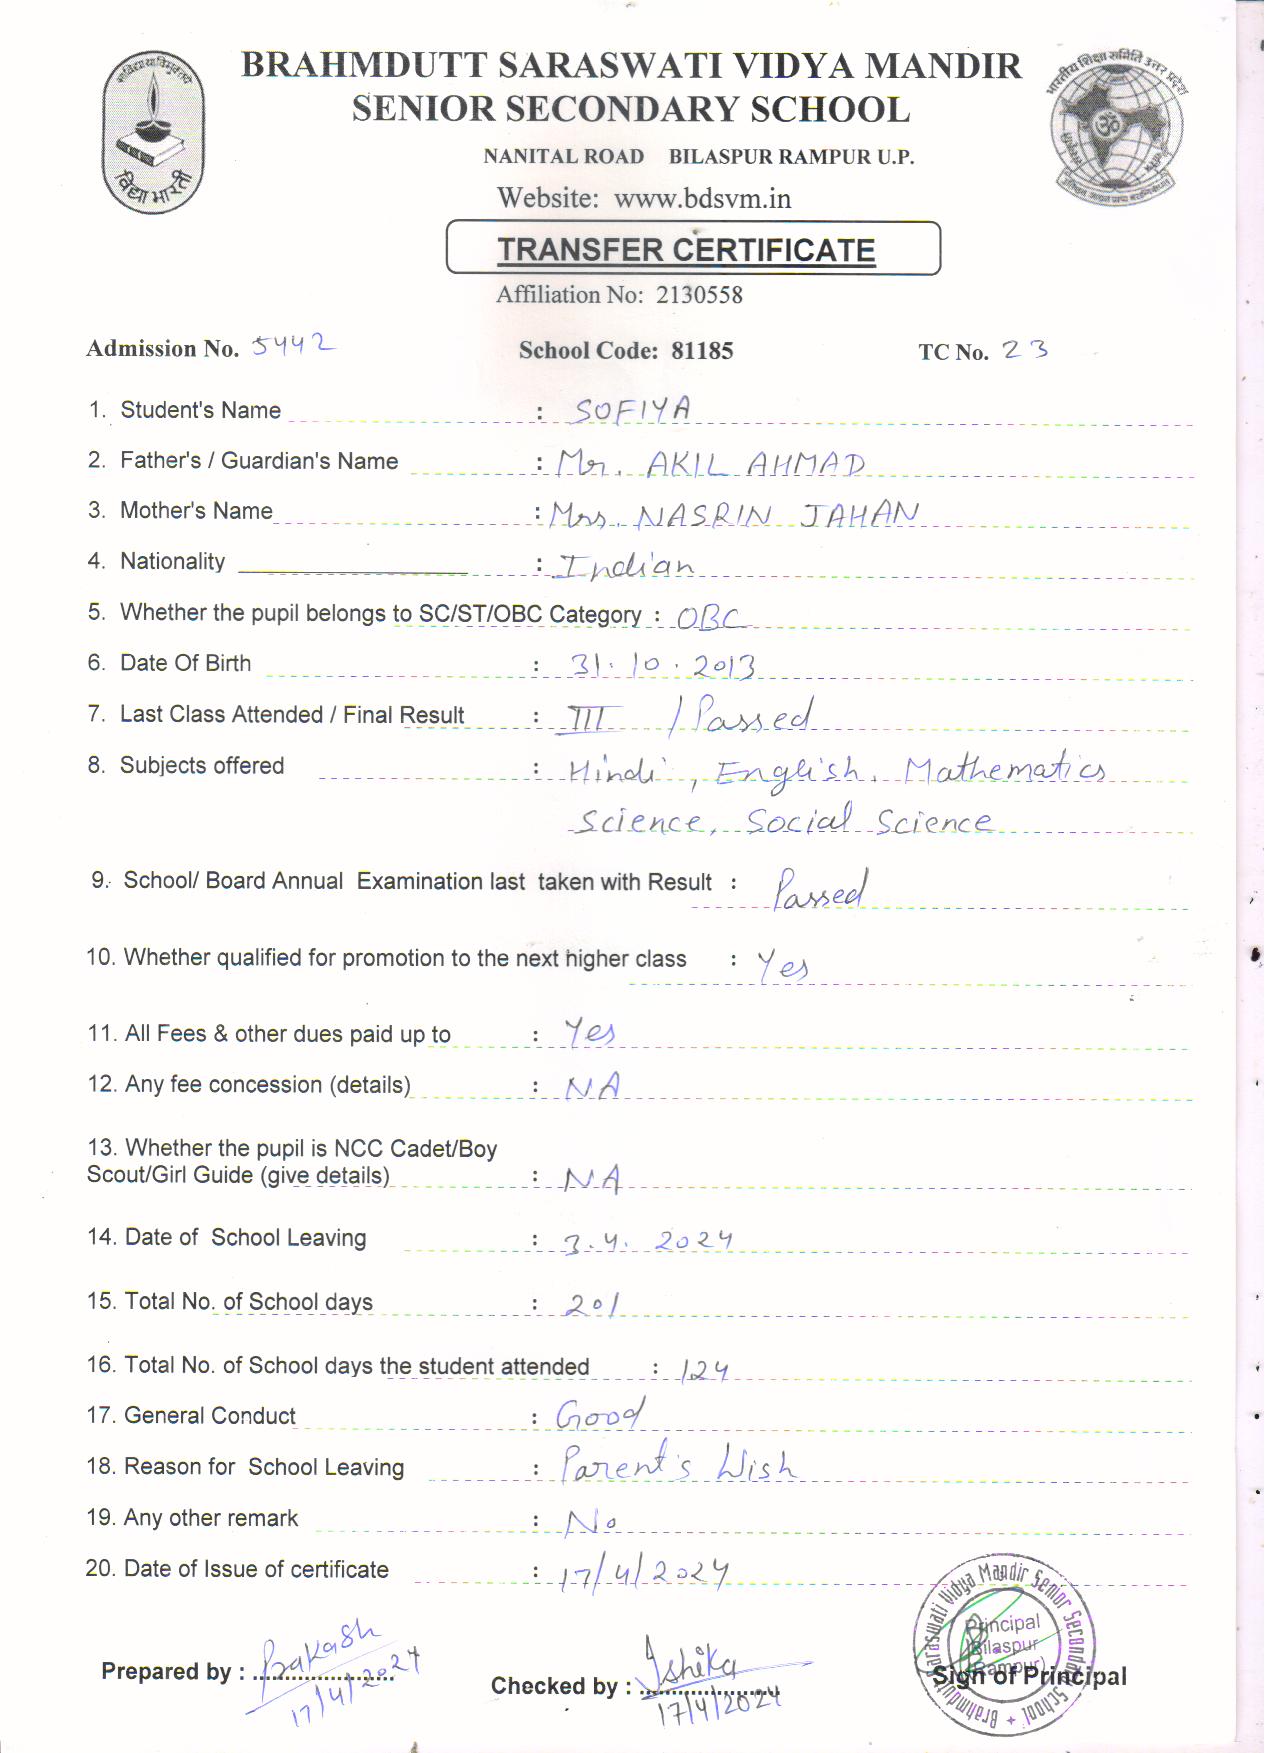 BRAHMDUTT SARASWATI VIDYA MANDIR
SENIOR SECONDARY SCHOOL
NANITAL ROAD BILASPUR RAMPUR U.P.
Website: www.bdsvm.in
विद्या भारती
भारतीय शिक्षा समिति उत्तर प्रदेश
TRANSFER CERTIFICATE
Affiliation No: 2130558
Admission No. 5442 School Code: 81185 TC No. 23
1. Student's Name : SOFIYA
2. Father's / Guardian's Name : Mr. AKIL AHMAD
3. Mother's Name : Mrs. NASRIN JAHAN
4. Nationality : Indian
5. Whether the pupil belongs to SC/ST/OBC Category : OBC
6. Date Of Birth : 31.10.2013
7. Last Class Attended / Final Result : III / Passed
8. Subjects offered : Hindi, English, Mathematics
Science, Social Science
9. School/ Board Annual Examination last taken with Result : Passed
10. Whether qualified for promotion to the next higher class : Yes
11. All Fees & other dues paid up to : Yes
12. Any fee concession (details) : NA
13. Whether the pupil is NCC Cadet/Boy
Scout/Girl Guide (give details) : NA
14. Date of School Leaving : 3.4.2024
15. Total No. of School days : 201
16. Total No. of School days the student attended : 124
17. General Conduct : Good
18. Reason for School Leaving : Parent's Wish
19. Any other remark : No
20. Date of Issue of certificate : 17/4/2024
Prepared by : Prakash
17/4/2024
Checked by : Ishika
17/4/2024
Principal
Bilaspur
(Rampur)
Sign of Principal